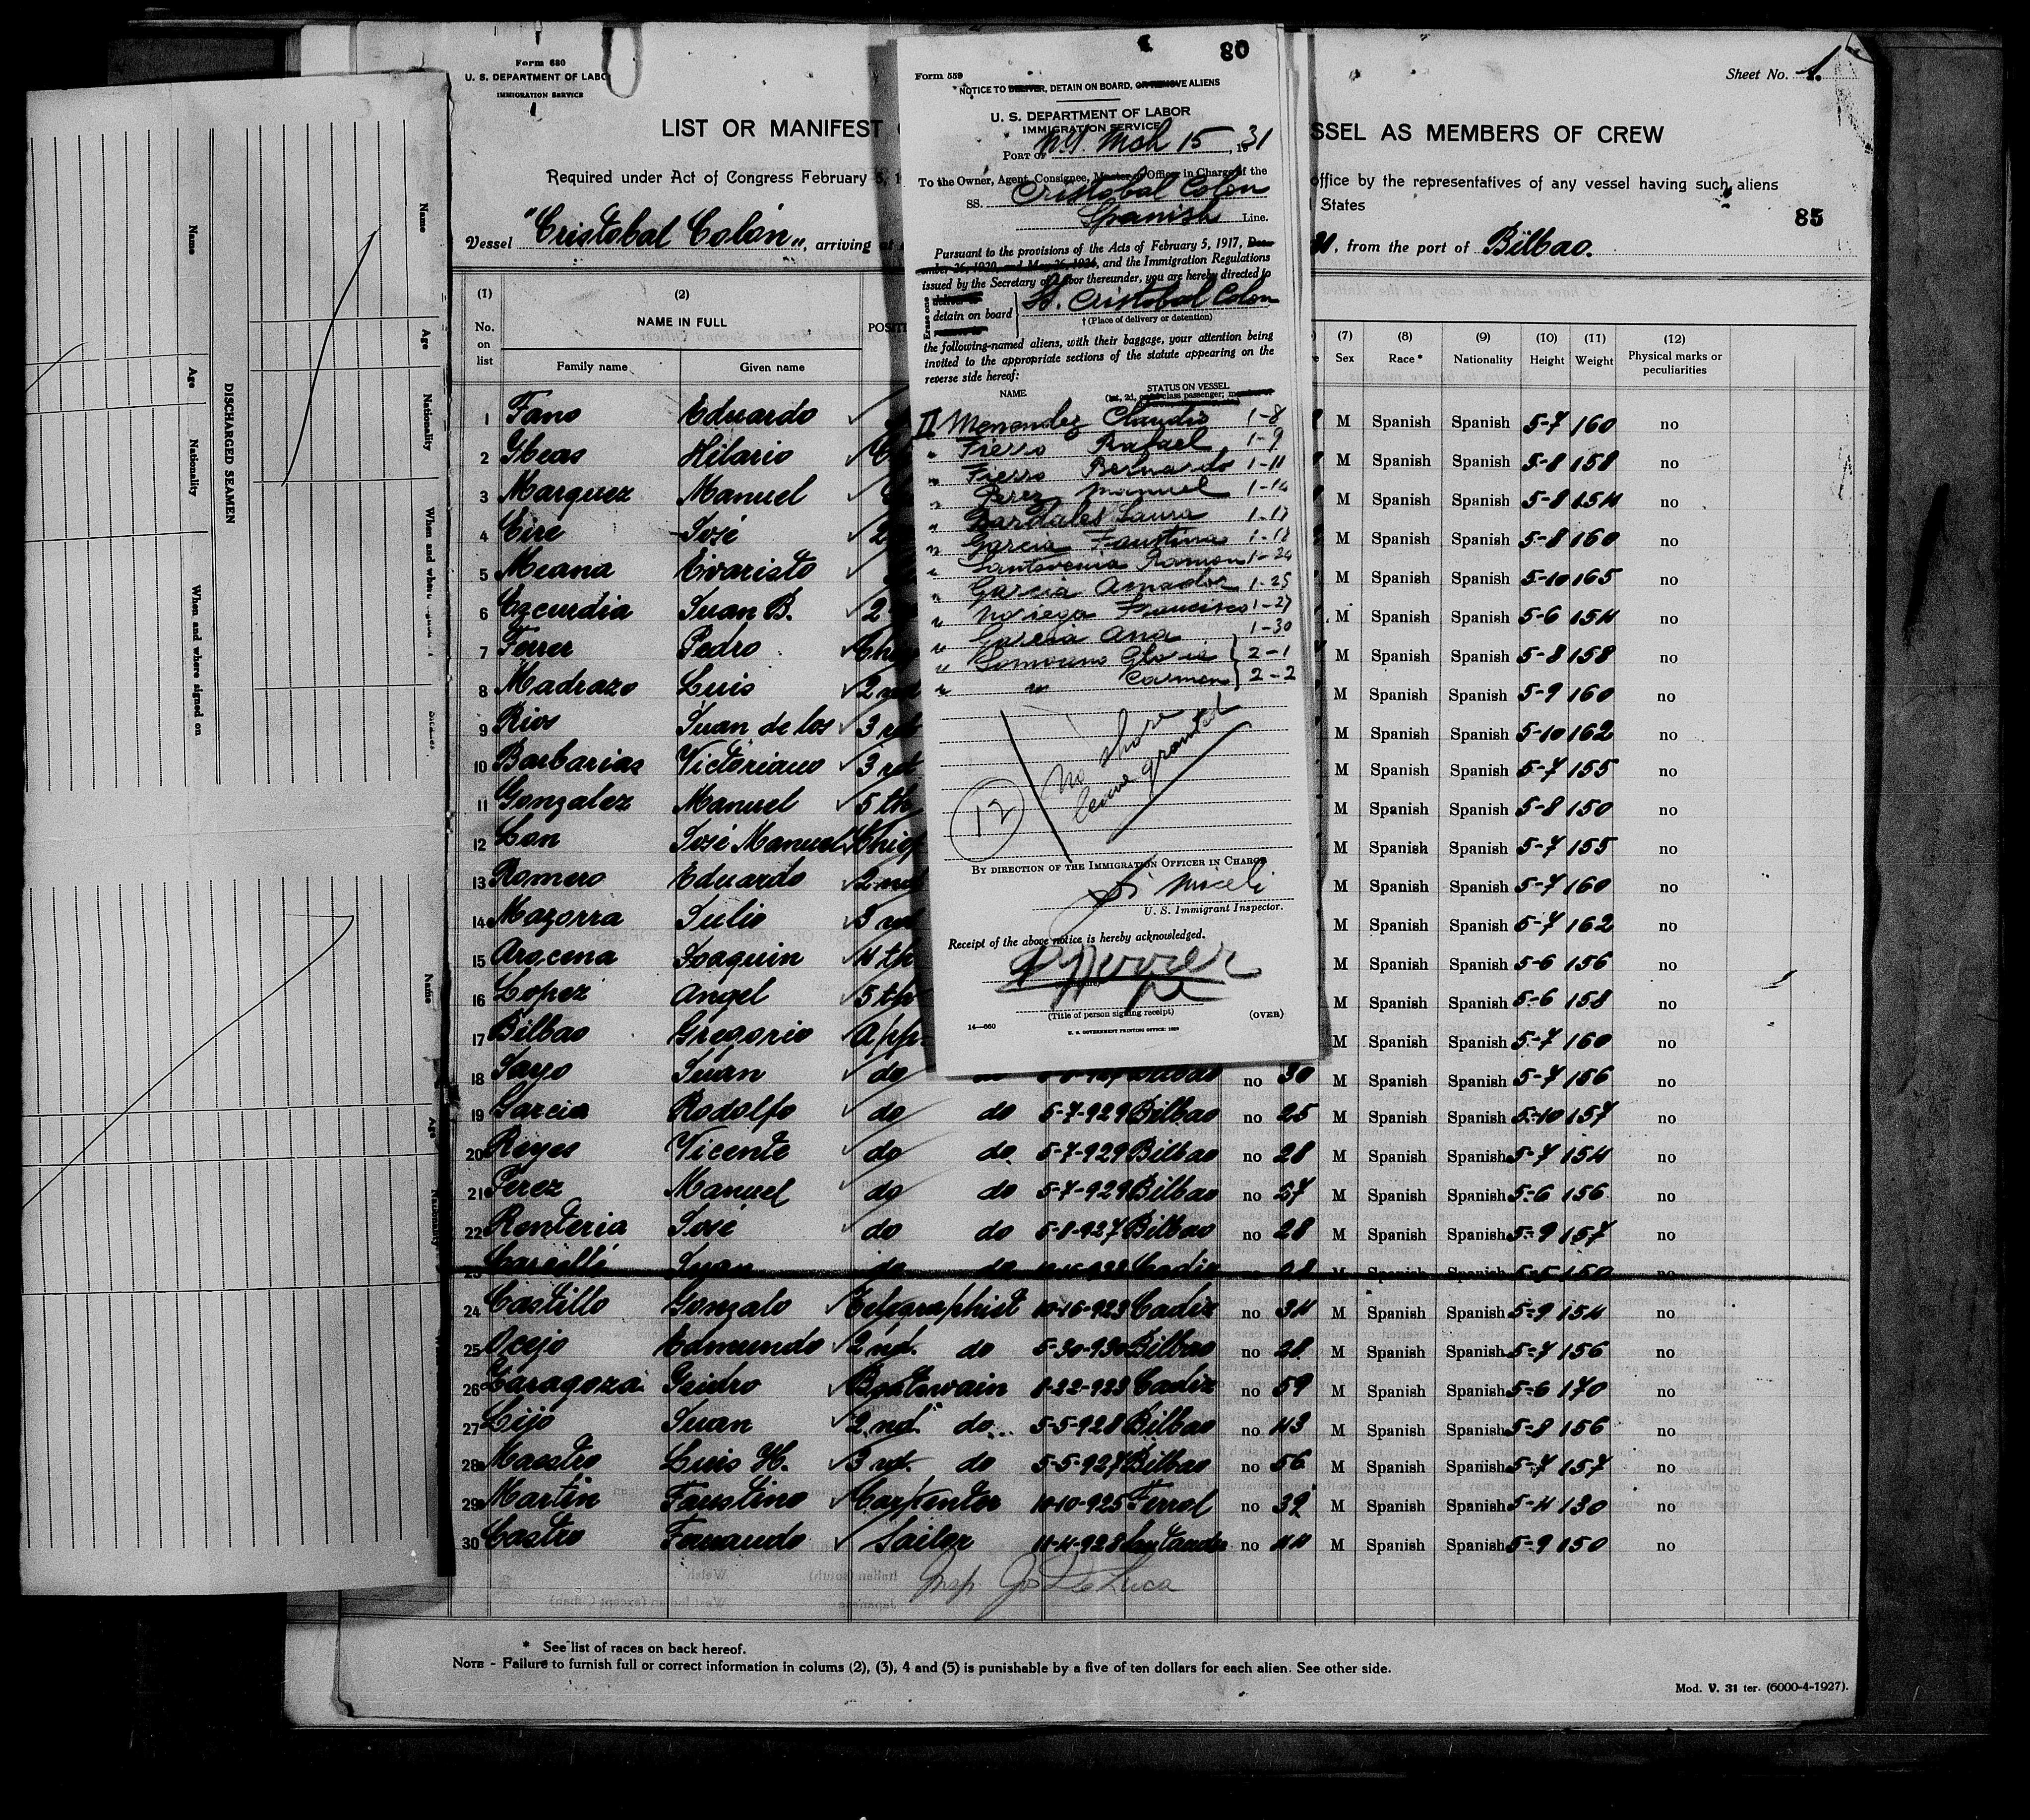 Form 680
U. S. DEPARTMENT OF LABO
IMMIGRATION SERVICE
Sheet No. 1.
LIST OR MANIFEST
SSEL AS MEMBERS OF CREW
Required under Act of Congress February 5, 1
office by the representatives of any vessel having such aliens
States
85
Vessel "Cristobal Colón", arriving at
, from the port of Bilbao.
(1) (2) (7) (8) (9) (10) (11) (12)
No. on list NAME IN FULL POSITI Sex Race* Nationality Height Weight Physical marks or peculiarities
Family name Given name
1 Fano Eduardo M Spanish Spanish 5-7 160 no
2 Hilario M Spanish Spanish 5-8 158 no
3 Marquez Manuel M Spanish Spanish 5-8 154 no
4 Eire José 2 M Spanish Spanish 5-8 160 no
5 Meana Evaristo M Spanish Spanish 5-10 165 no
6 Ezcurdia Juan B. 2 M Spanish Spanish 5-6 154 no
7 Ferrer Pedro Chie M Spanish Spanish 5-8 158 no
8 Madrazo Luis 2nd M Spanish Spanish 5-9 160 no
9 Rios Juan de los 3rd M Spanish Spanish 5-10 162 no
10 Barbarias Victoriano 3rd M Spanish Spanish 5-7 155 no
11 Gonzalez Manuel 5th M Spanish Spanish 5-8 150 no
12 Lan José Manuel Chief M Spanish Spanish 5-7 155 no
13 Romero Eduardo 2nd M Spanish Spanish 5-7 160 no
14 Mazorra Julio 3rd M Spanish Spanish 5-7 162 no
15 Arocena Joaquin 4th M Spanish Spanish 5-6 156 no
16 Lopez Angel 5th M Spanish Spanish 5-6 158 no
17 Bilbao Gregorio App. M Spanish Spanish 5-7 160 no
18 Juan do no 30 M Spanish Spanish 5-7 156 no
19 Garcia Rodolfo do do 5-7-929 Bilbao no 25 M Spanish Spanish 5-10 157 no
20 Reyes Vicente do do. 5-7-929 Bilbao no 28 M Spanish Spanish 5-7 154 no
21 Perez Manuel do do 5-7-929 Bilbao no 27 M Spanish Spanish 5-6 156 no
22 Renteria José do do 5-8-927 Bilbao no 28 M Spanish Spanish 5-9 157 no
23 Juan do do Cadiz no M Spanish Spanish 5-5 150 no
24 Castillo Gonzalo Telegraphist 10-16-923 Cadiz no 34 M Spanish Spanish 5-9 154 no
25 Ocejo Edmundo 2nd. do 5-30-930 Bilbao no 28 M Spanish Spanish 5-7 156 no
26 Zaragoza Isidro Boatswain 8-22-923 Cadiz no 59 M Spanish Spanish 5-6 170 no
27 Lijo Juan 2nd. do 5-5-928 Bilbao no 43 M Spanish Spanish 5-8 156 no
28 Maestro Luis H. 3rd. do 5-5-927 Bilbao no 56 M Spanish Spanish 5-7 157 no
29 Martin Faustino Carpenter 10-10-925 Ferrol no 39 M Spanish Spanish 5-4 130 no
30 Castro Fernando Sailor 11-4-928 Santander no 44 M Spanish Spanish 5-9 150 no
Insp. Jos De Luca
* See list of races on back hereof.
NOTE - Failure to furnish full or correct information in colums (2), (3), 4 and (5) is punishable by a five of ten dollars for each alien. See other side.
Mod. V. 31 ter. (6000-4-1927).
80
Form 559
NOTICE TO DELIVER, DETAIN ON BOARD, OR REMOVE ALIENS
U. S. DEPARTMENT OF LABOR
IMMIGRATION SERVICE
PORT OF N.Y. Mch 15, 1931
To the Owner, Agent, Consignee, Master or Officer in Charge of the
SS. Cristobal Colon
Spanish Line.
Pursuant to the provisions of the Acts of February 5, 1917, Decem-
ber 26, 1920, and May 26, 1924, and the Immigration Regulations
issued by the Secretary of Labor thereunder, you are hereby directed to
Erase one
deliver to
detain on board St. Cristobal Colon
remove to
† (Place of delivery or detention)
the following-named aliens, with their baggage, your attention being
invited to the appropriate sections of the statute appearing on the
reverse side hereof:
NAME STATUS ON VESSEL
(1st, 2d, or 3d class passenger; member of
II Menendez Claudio 1-8
" Fierro Rafael 1-9
" Fierro Bernardo 1-11
" Perez Manuel 1-14
" Bardales Laura 1-17
" Garcia Faustino 1-18
" Ramon 1-24
" Garcia Amador 1-25
" Noriega Francisco 1-27
" Garcia Ana 1-30
" Gloria 2-1
" " Carmen 2-2
No shore
leave granted
12
BY DIRECTION OF THE IMMIGRATION OFFICER IN CHARGE
Miceli
U. S. Immigrant Inspector.
Receipt of the above notice is hereby acknowledged.
(Title of person signing receipt)
14—660
(OVER)
U. S. GOVERNMENT PRINTING OFFICE: 1929
DISCHARGED SEAMEN
Name
Age
Nationality
When and where signed on
Name
Age
Nationality
When and where
Name
Age